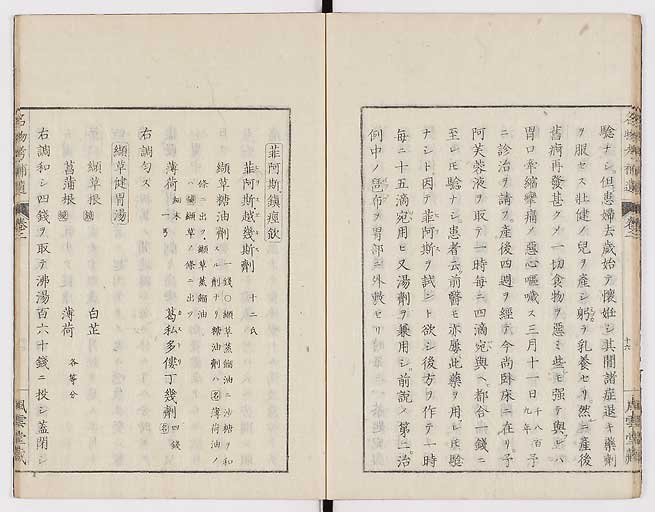 驗ナシ但〻患婦去歲始テ懷妊シ其間諸症退キ藥劑
ヲ服セス壯健ノ兒ヲ產シ躬ラ乳養セリ然ニ產後
舊病再發甚クメ一切食物ヲ惡ミ些モ强テ與レハ
胃口牽縮攣痛メ惡心嘔噦ス三月十一日
千八百
九年
予
ニ診治ヲ請フ產後四週ヲ經テ今尚臥床ニ在リ予
阿芙蓉液ヲ取テ一時每ニ四滴宛與ヘ都合一錢ニ
至レモ驗ナシ患者云前醫モ亦屢此藥ヲ用レモ驗
ナシト因テ菲阿斯ヲ試ント欲シ後方ヲ作テ一時
每ニ十五滴宛用ヒ又湯劑ヲ兼用シ前說ノ第二治
例中ノ
布ヲ胃部ニ外敷セリ
名物考補遺
卷二
十六
風雲堂藏
菲阿斯鎮痙飲
菲阿斯越幾斯劑 十二氏
纈草糖油劑
一錢〇纈草蒸餾油ニ沙糖ヲ和
スル劑ナリ糖油劑ハ名薄荷油ノ
條ニ出ツ纈草蒸餾油
ハ纈草ノ條ニ出ツ
薄荷
細末
一弓
葛私多僂丁幾劑 四錢
名
右調勻ス
纈草健胃湯
纈草根 白芷
菖蒲根 薄荷 各等分
右調和シ四錢ヲ取テ沸湯百六十錢ニ投シ蓋閉シ
名物考補遺
卷二
風雲堂藏